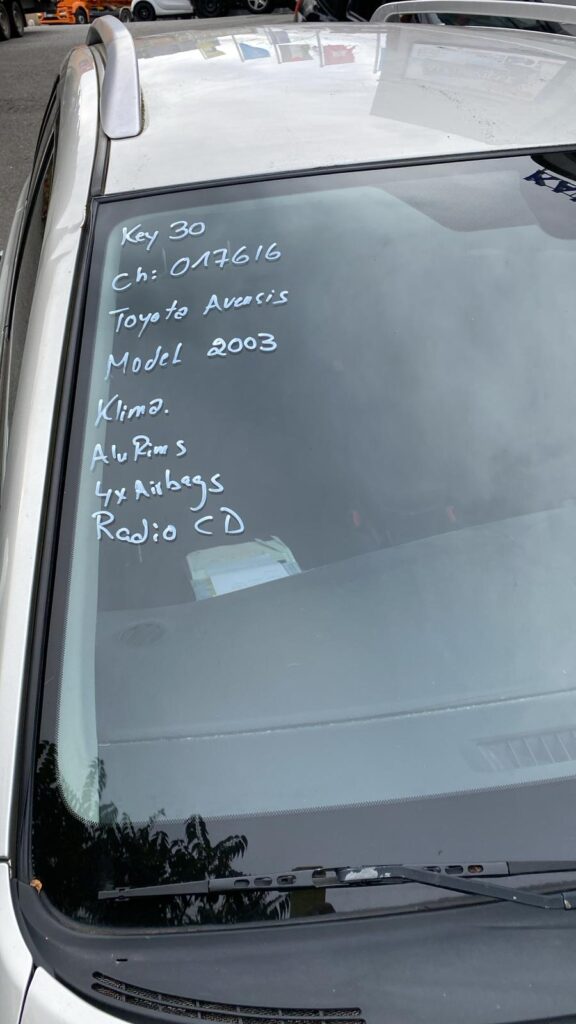 Key 30
Ch: 017616
Toyota Avensis
Model 2003
Klima.
Alu Rims
4x Airbags
Radio CD